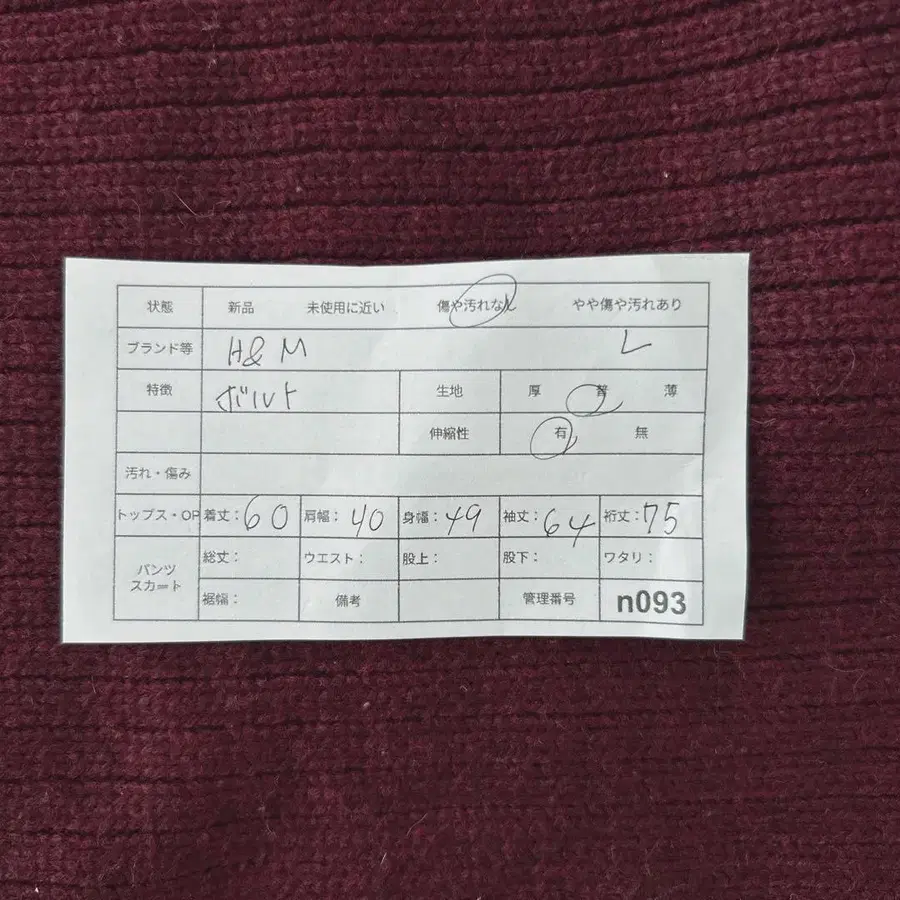 状態 新品 未使用に近い 傷や汚れなし やや傷や汚れあり
ブランド等 H&M L
特徴 ボルト 生地 厚 普 薄
伸縮性 有 無
汚れ・傷み
トップス・OP 着丈:60 肩幅:40 身幅:49 袖丈:64 裄丈:75
パンツ スカート 総丈: ウエスト: 股上: 股下: ワタリ:
裾幅: 備考 管理番号 n093